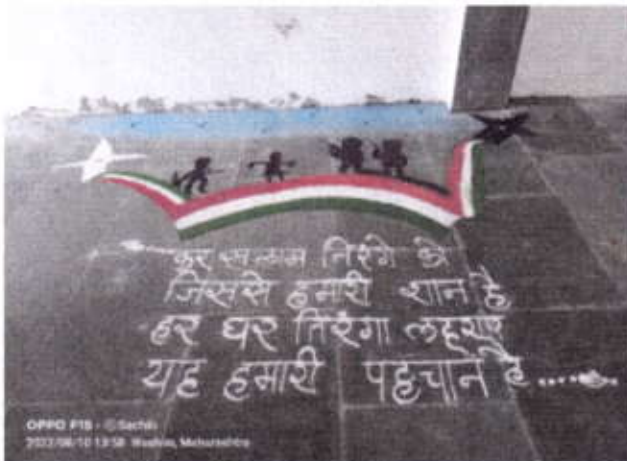 कर सलाम तिरंगे को
जिससे हमारी शान है
हर घर तिरंगा लहराए
यह हमारी पहचान है .....
OPPO F15 · ©Sachin
2022/08/10 13:58 Maharashtra